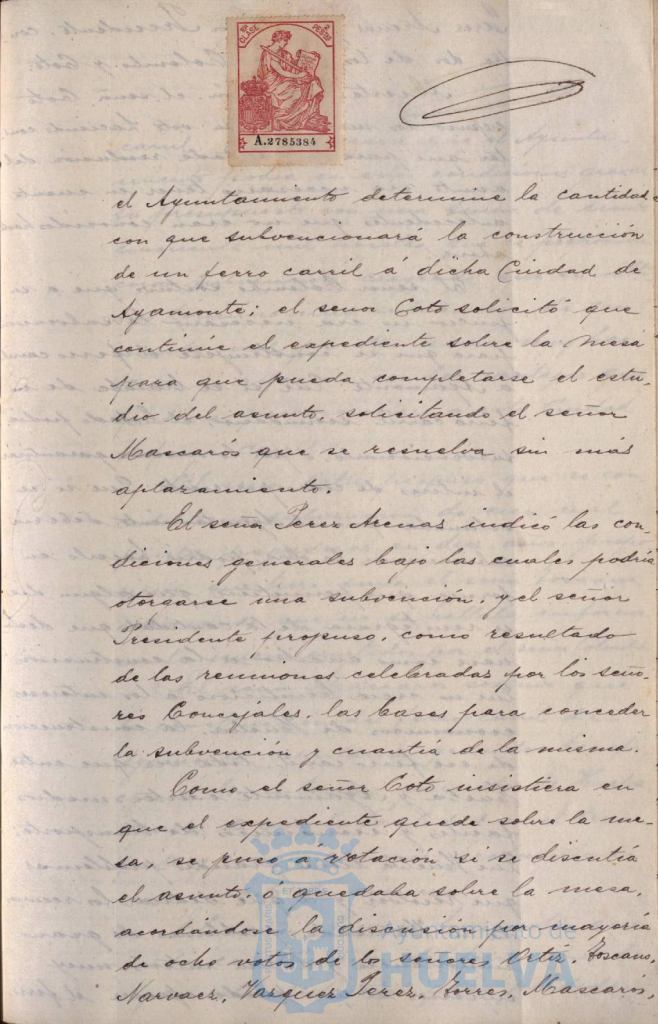 10ª CLASE 2 PESETAS
A.2785384
el Ayuntamiento determine la cantidad
con que subvencionará la construcción
de un ferro carril á dicha Ciudad de
Ayamonte; el señor Coto solicitó que
continúe el expediente sobre la mesa
para que pueda completarse el estu-
dio del asunto, solicitando el señor
Mascarós que se resuelva sin más
aplazamiento.
El señor Perez Arenas indicó las con-
diciones generales bajo las cuales podría
otorgarse una subvención, y el señor
Presidente propuso, como resultado
de las reuniones celebradas por los seño-
res Concejales, las bases para conceder
la subvención y cuantiá de la misma.
Como el señor Coto insistiera en
que el expediente quede sobre la me-
sa, se puso á votación si se discutía
el asunto, ó quedaba sobre la mesa,
acordándose la discusión por mayoría
de ocho votos de los señores Ortiz, Toscano,
Narvaez, Vazquez Perez, Torres, Mascarós,
Ayuntamiento de
HUELVA